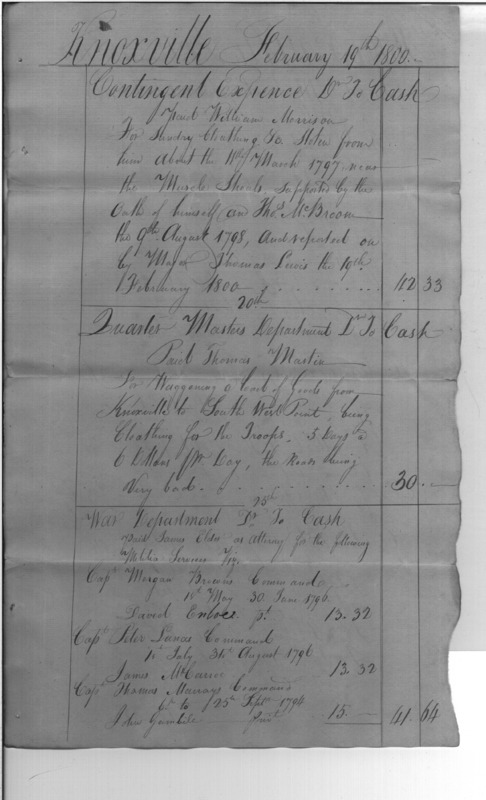 Knoxville February 19th 1800
Contingent Expence Dr To Cash
Paid William Morrison
For Sundry Cloathing &a Stolen from
him About the 10th of March 1797 near
the Muscle Shoals, supported by the
Oath of himself and Thos McBroom
the 9th August 1798, And reported on
by Major Thomas Lewis the 19th
February 1800 42 33
20th
Quarter Masters Department Dr To Cash
Paid Thomas Mastin
For Waggoning a load of Goods from
Knoxville to South West Point, being
Cloathing for the Troops, 5 Days a
6 Dollars pr Day, the Roads being
Very bad 30
25th
War Department Dr To Cash
Paid James as Attorney for the following
Militia Services Viz
Capt Morgan Command
1st May 30 June 1796
David pt 13.32
Capt Peter Command
1st July 31st August 1796
James 13.32
Capt Thomas Murrays Command
to 25th Septr 1794
John Gamble 15 41 64